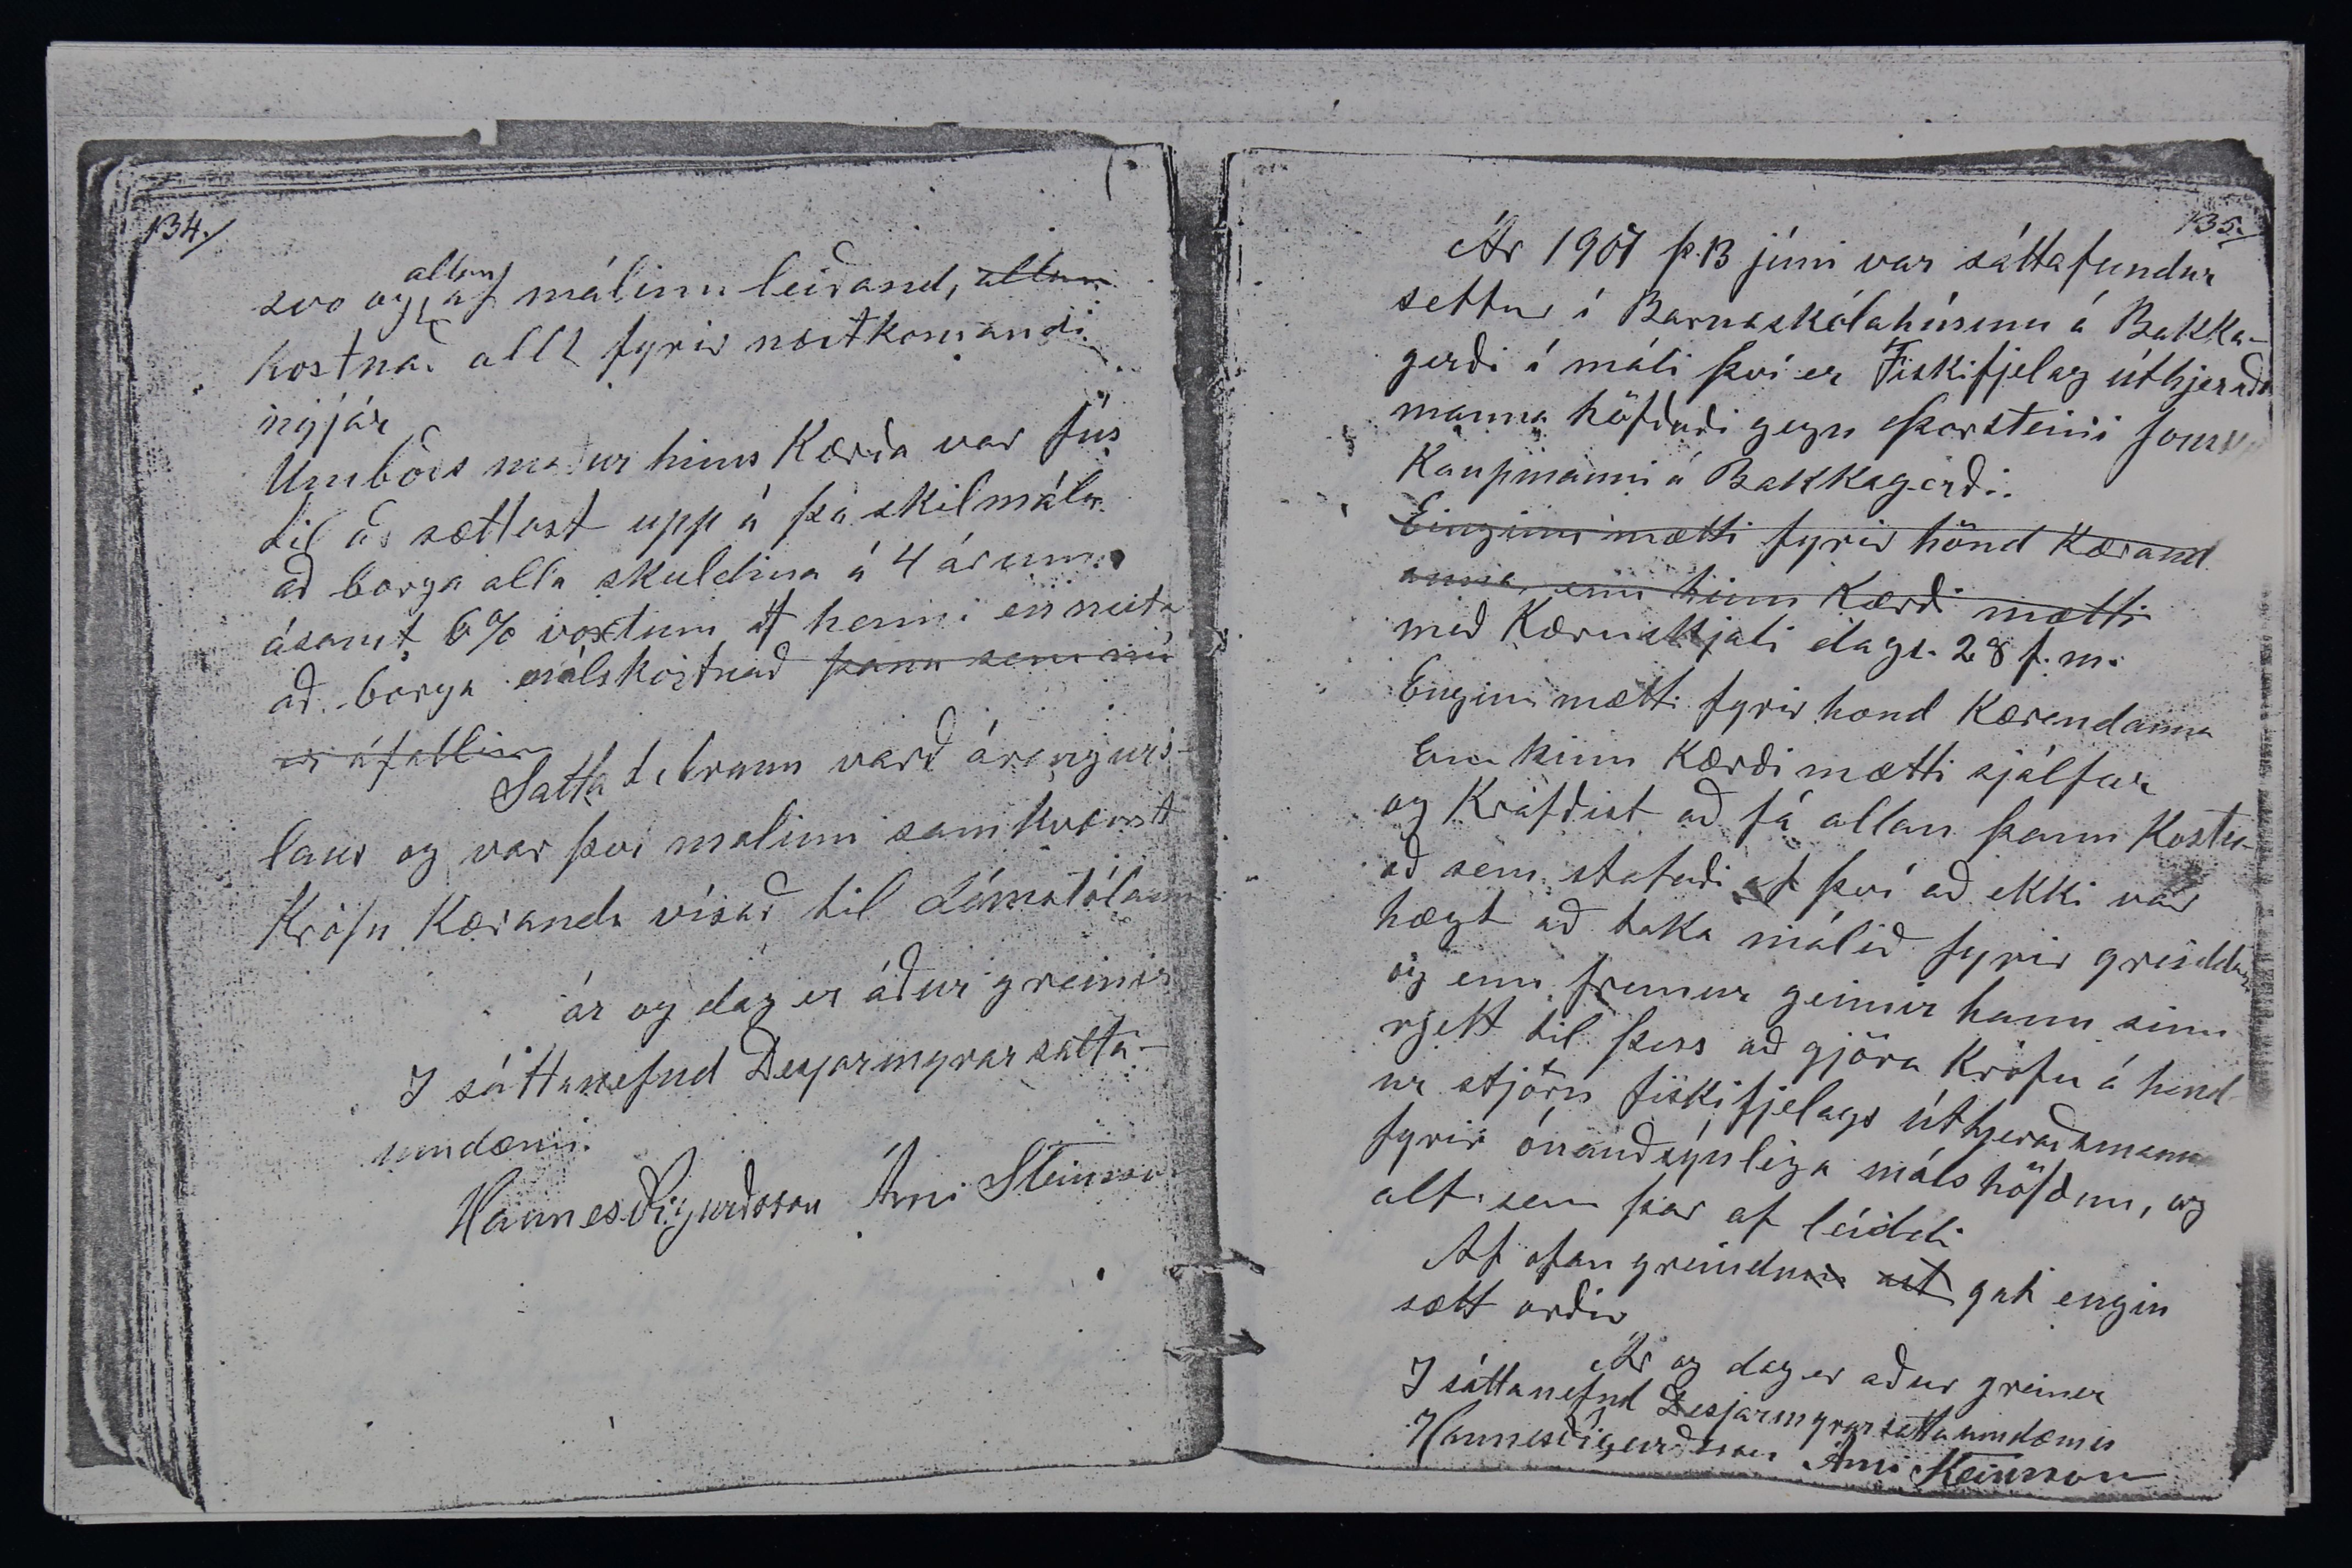 134./
svo og allan af málinu leiðand, allan
kostnað allt fyrir næstkomandi
nýjár
Umboðsmaður hins Kærða var fús
til að sættast upp á þá skilmála
að borga alla skuldina á 4 árum
ásamt 6% vöxtum af henni en neita
að borga málskostnað þann sem nú
er áfallin
Satta tilraun varð árangurs-
laus og var því malinu samkvæmt
Kröfu Kæranda vísað til dómstólanna
ár og dag er áður greinir
I sáttanefnd Desjarmyrar satta-
umdæmi.
Hannes Sigurðsson Árni Steinsson
135./
Ár 1907 þ. 13 júni var sáttafundur
settur í Barnaskólahúsinu á Bakka-
gerði í máli því er Fiskifjelag úthjeraðs
manna höfðaði gegn Þorsteini Jónssyni
Kaupmanni á Bakkagerði.
Einginn mætti fyrir hönd Kærand
anna, enn hinn Kærði mætti
með Kæruskjali dags. 28 f. m.
Enginn mætti fyrir hond Kærendanna
Enn hinn Kærði mætti sjálfur
og Krafðist að fá allan þann Kostn-
að sem stafaði af því að ekki var
hægt að taka málið fyrir greiddan
og enn fremur geimir hann sinn
rjett til þess að gjöra Kröfu á hend-
ur stjórn fiskifjelags úthjeraðsmanna
fyrir ónauðsýnliga málshöfðun, og
alt sem þar af leiddi
Af ofan greindum ast gat engin
sætt orðið
Ár og dag er aður greiner
I sáttanefnd Desjarmyrar satta umdæmis
Hannes Sigurðsson Árni Steinsson